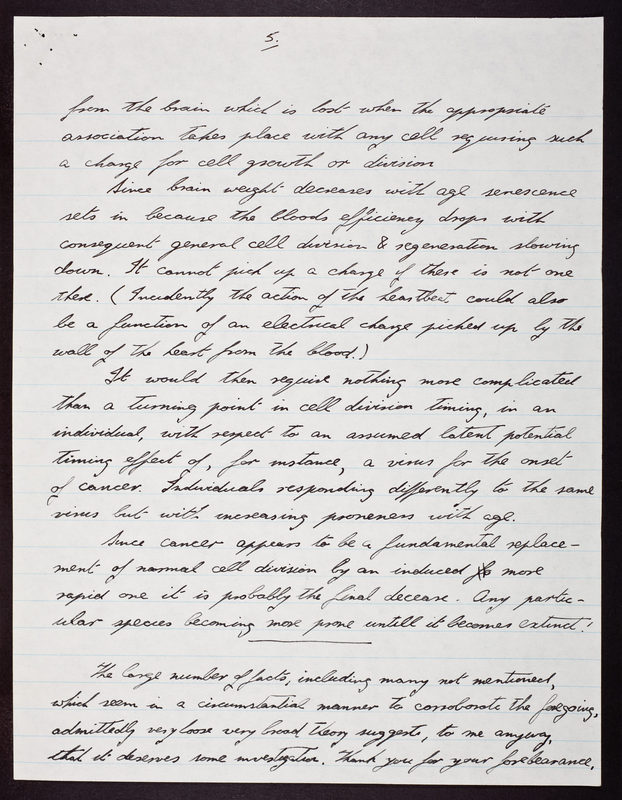 5.
from the brain which is lost when the appropriate
association takes place with any cell requiring such
a charge for cell growth or division
Since brain weight decreases with age senescence
sets in because the bloods efficiency drops with
consequent general cell division & regeneration slowing
down. It cannot pick up a charge if there is not one
there. (Incidently the action of the heartbeat could also
be a function of an electrical charge picked up by the
wall of the heart from the blood.)
It would then require nothing more complicated
than a turning point in cell division timing, in an
individual, with respect to an assumed latent potential
timing effect of, for instance, a virus for the onset
of cancer. Individuals responding differently to the same
virus but with increasing proneness with age.
Since cancer appears to be a fundamental replace-
ment of normal cell division by an induced more
rapid one it is probably the final decease. Any partic-
ular species becoming more prone untill it becomes extinct!
The large number of facts, including many not mentioned,
which seem in a circumstantial manner to corroborate the foregoing,
admittedly very loose very broad theory suggests, to me anyway,
that it deserves some investigation. Thank you for your forebearance.